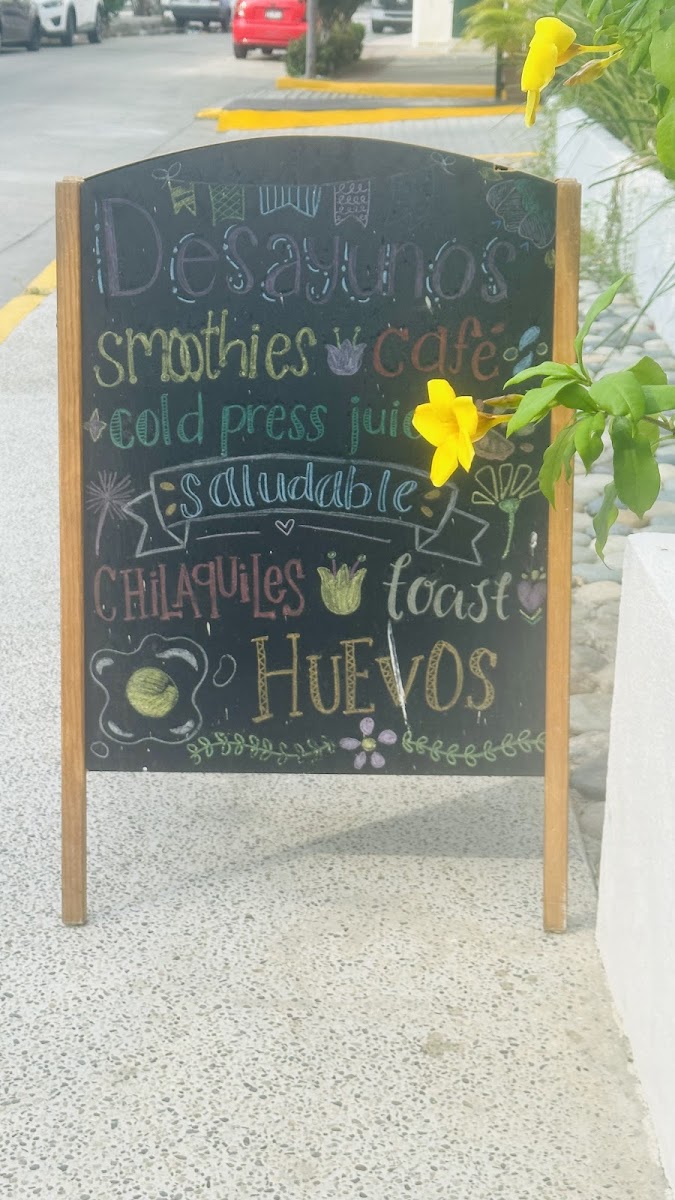 Desayunos
smoothies café
cold press juic
saludable
CHILAQUILES toast
HUEVOS